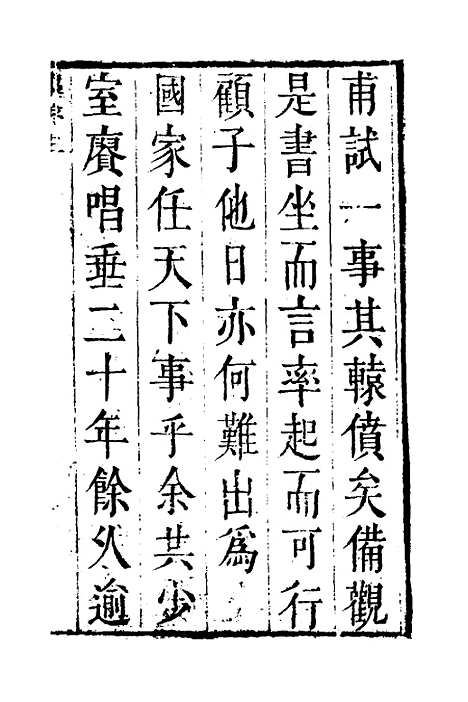 甫試一事其轅僨矣備觀
是書坐而言率起而可行
顧子他日亦何難出爲
國家任天下事乎余共少
室賡唱垂二十年餘久逾